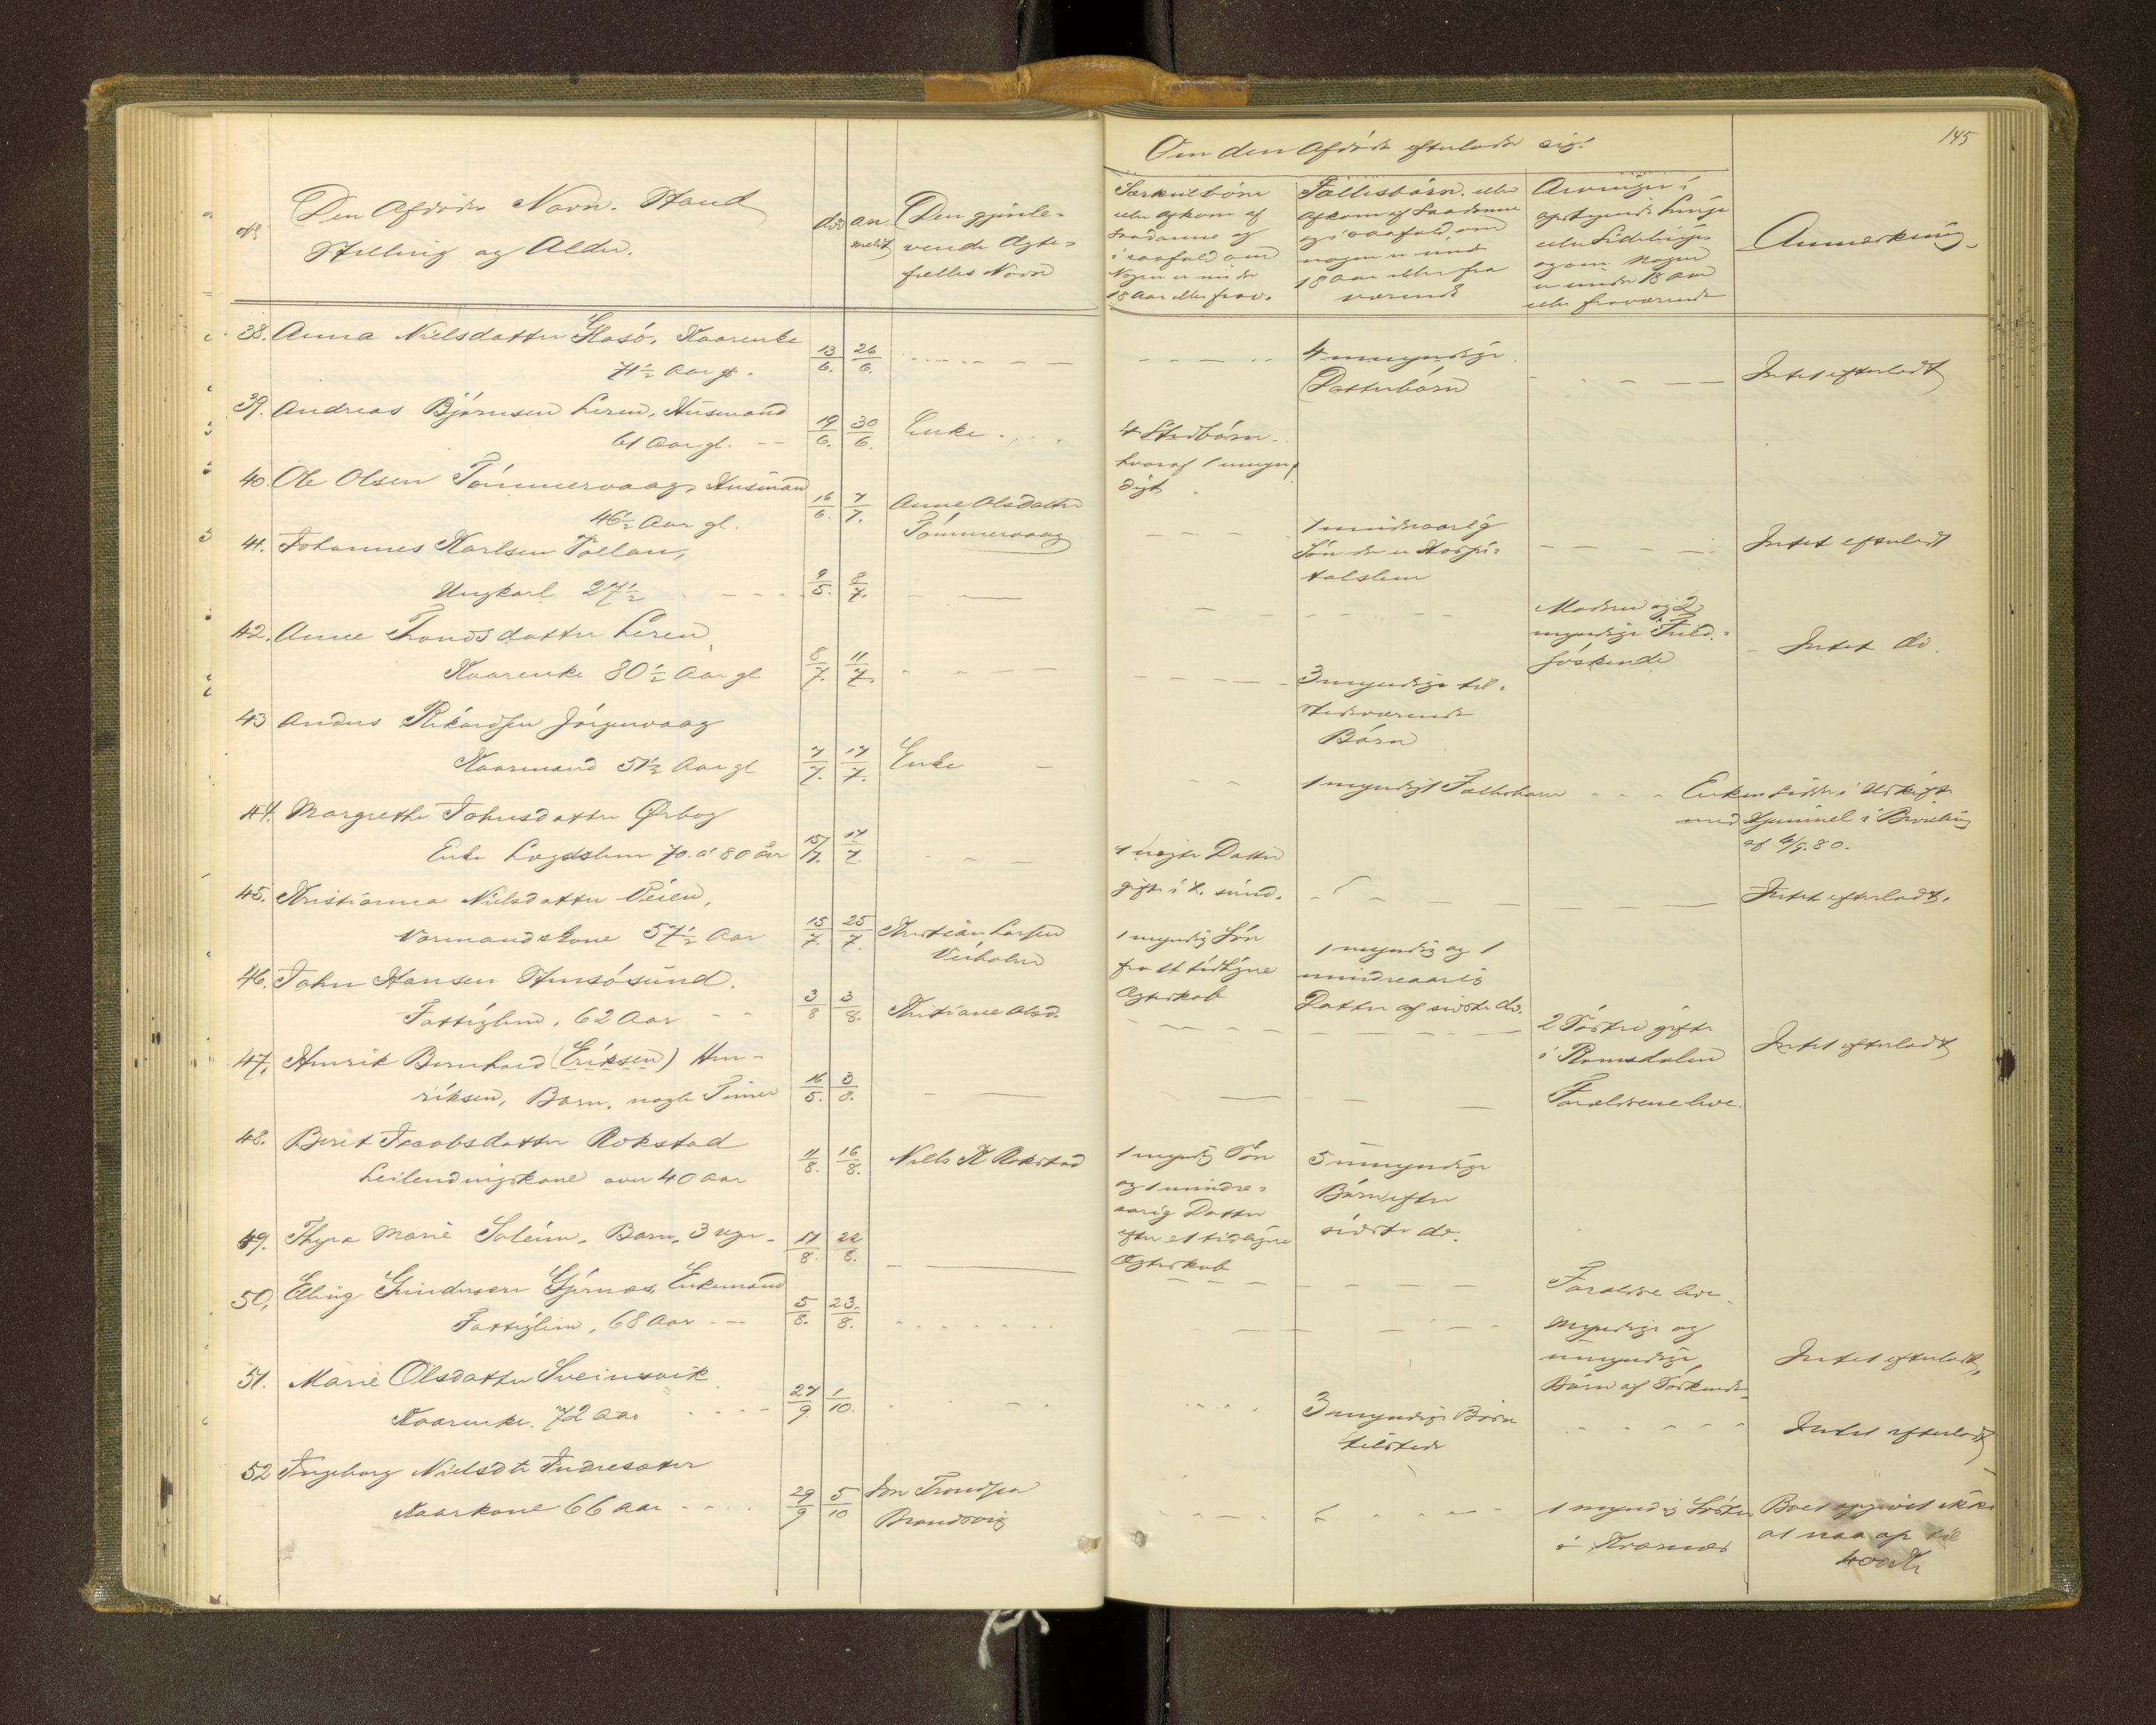 145
Om den Afdøde efterlader sig:
No
Den Afdødes Navn. Stand
Stilling og Alder.
død
an-
meldt
Den gjenle-
vende Ægte-
fælles Navn
Særkulbørn
eller Afkom af
saadanne og
i saafald om
Nogen er under
18 Aar eller frav.
Fællesbørn eller
Afkom af saadanne
og i saafald om
nogen er under
18 Aar eller fra
værende
Arvinger i
opstigende Linje
eller Sidelinjer
og om Nogen
er under 18 Aar
eller fraværende
Anmærkning
38. Anna Nielsdatter Glasø, Kaarenke
71½ Aar gl.
13/6. 26/6.
4 umyndige
Datterbørn
Intet efterladt
39. Andreas Bjørnsen Leren, Husmand
61 Aar gl.
19/6. 30/6.
Enke
4 Stedbørn
hvoraf 1 umyn-
digt
40. Ole Olsen Tømmervaag, Husmand
46½ Aar gl.
16/6. 7/7.
Anne Olsdatter
Tømmervaag
1 mindreaarig
Søn der er Hospi-
talslem
Intet efterladt
41. Johannes Karlsen Vollan,
Ungkarl 27½
9/5. 8/7.
Moderen og 2
myndige Fuld-
søskende
Intet do.
42. Anne Trondsdatter Leren
Kaarenke 80½ Aar gl
8/7. 11/7.
3 myndige til-
stedeværende
Børn
43 Anders Rikardsen Jørgenvaag
Kaarmand 51½ Aar gl
7/7. 17/7.
Enke
1 myndigt Fællesbarn
Enken sidder i Uskifte
med Hjemmel i Bevilling
af 4/9. 80.
44. Margrethe Johnsdatter Ørbog
Enke Lægdslem 70 à 80 år
15/7. 17/7.
1 uægte Datter
gift i K. sund.
Intet efterladt.
45. Kristianna Nielsdatter Veien,
Vormandskone 57½ Aar
15/7. 25/7.
Kristian Larsen
Veiholm
1 myndig Søn
fra et tidligere
Ægteskab
1 myndig og 1
mindreaarig
Datter af sidste do.
46. John Hansen Humsøsund.
Fattiglem, 62 Aar
3/8 3/8.
Kristiane Olsd.
2 Søstre gifte
i Romsdalen
Intet efterladt
47. Henrik Bernhard (Eriksen) Hen-
riksen, Barn, nogle Timer
16/5. 3/8.
Forældrene leve.
48. Berit Jacobsdatter Rokstad
Leilendingskone over 40 aar
11/8. 16/8.
Niels K Rokstad
1 myndig Søn
og 1 mindre-
aarig Datter
efter et tidligere
Ægteskab
5 umyndige
Børn efter
sidste do.
49. Thyra Marie Solèim, Barn, 3 uger
17/8. 22/8.
Forældre leve.
50, Elling Gundersen Gjernæs, Enkemand
Fattiglem, 68 Aar
5/8. 23/8.
Myndige og
umyndige
Børn af Søskende
Intet efterladt,
51. Marie Olsdatter Sveinsvik
Kaarenke. 72 Aar
27/9 1/10.
3 myndige Børn
tilstede
Intet efterladt
52 Ingeborg Nielsdtr Indresæter
Kaarkone 66 aar
29/9 5/10
Jon Trondsen
Brandsvig
1 myndig Søster
i Kværnes
Boet opgivet ikke
at naa op til
400 Kr